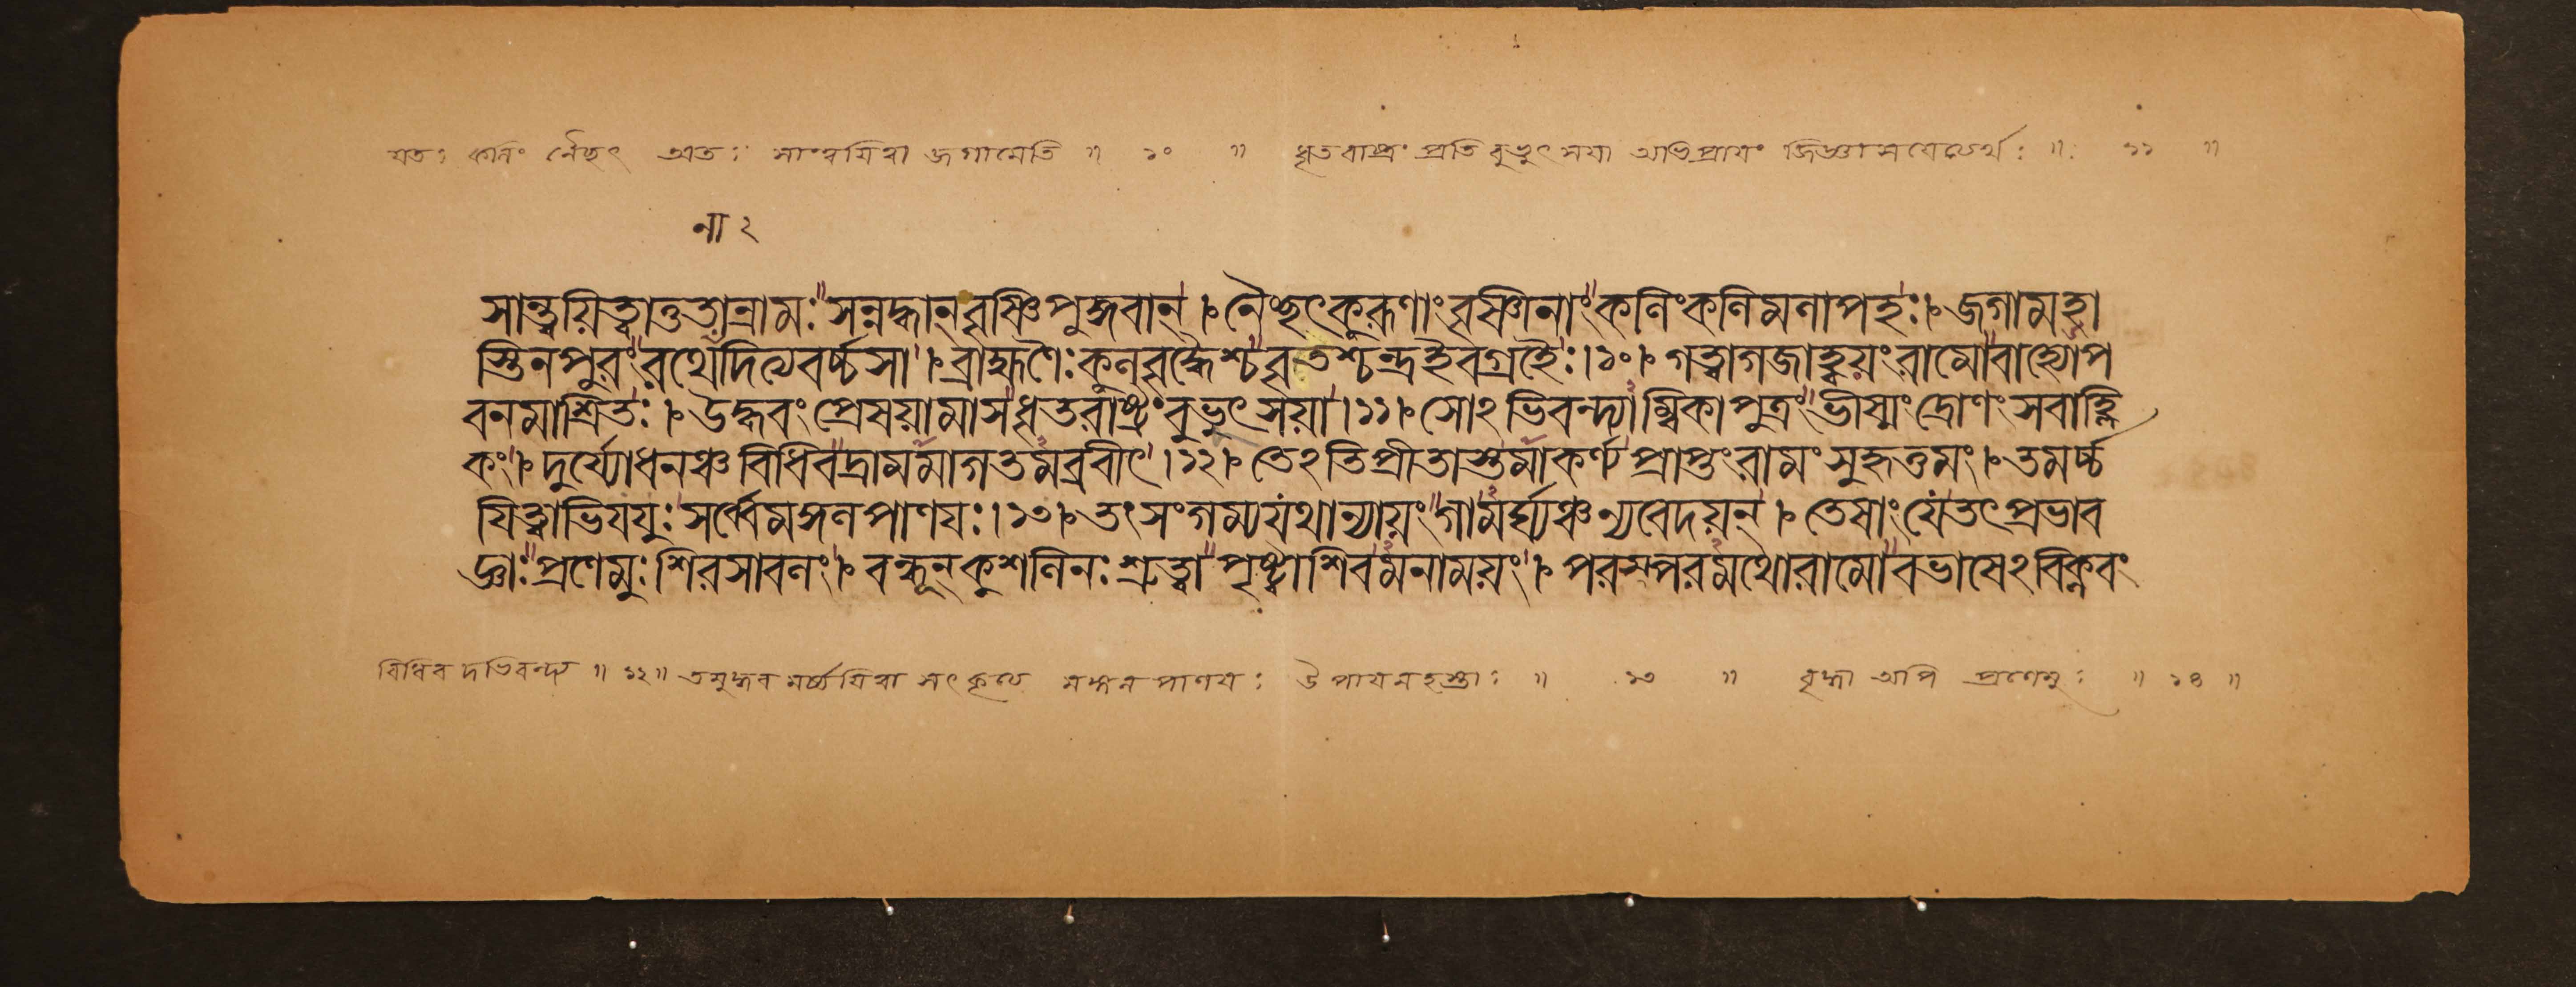 যতঃ কলিং নৈচ্ছৎ অতঃ সান্ত্বয়িত্বা জগামেতি ॥ ১০ ॥ ধৃতরাষ্ট্রং প্রতি বুভুৎসয়া অভিপ্রায়ং জিজ্ঞাসয়েত্যর্থঃ ॥ ১১ ॥
না ২
সান্ত্বয়িত্বাতুতান্রামঃ সন্নদ্ধান্বৃষ্ণিপুঙ্গবান্ । নৈচ্ছৎকুরূণাংবৃষ্ণীনাং কলিংকলিমলাপহঃ। জগামহা
স্তিনপুরং রথেনাদিত্যবর্চ্চসা । ব্রাহ্মণৈঃ কুলবৃদ্ধৈশ্চ বৃতশ্চন্দ্রইবগ্রহৈঃ।১০। গত্বাগজাহ্বয়ংরামোবাহ্যোপ
বনমাশ্রিতঃ । উদ্ধবং প্রেষয়ামাসধৃতরাষ্ট্রংবুভুৎসয়া।১১। সোঽভিবন্দ্যাম্বিকাপুত্রং ভীষ্মং দ্রোণং সবাহ্লি
কং। দুর্য্যোধনঞ্চ বিধিবদ্রামমাগতমব্রবীৎ।১২। তেঽতিপ্রীতাস্তমাকর্ণ্য প্রাপ্তং রামং সুহৃত্তমং। তমর্চ্চ
য়িত্বাভিযযুঃ সর্ব্বেমঙ্গলপাণয়ঃ।১৩। তং সংগম্যযথান্যায়ং গামর্ঘ্যঞ্চন্যবেদয়ন্ । তেষাংযেতৎপ্রভাব
জ্ঞাঃ প্রণেমুঃ শিরসাবলং। বন্ধূন্কুশলিনঃ শ্রুত্বা পৃষ্ট্বাশিবমনাময়ং। পরস্পরমথোরামোবভাষেঽবিক্লবং
বিধিবদভিবন্দ্য ॥ ১২ ॥ তমুদ্ধবমর্চ্চয়িত্বা সৎকৃত্য মঙ্গলপাণয়ঃ উপায়নহস্তাঃ ॥ ১৩ ॥ বৃদ্ধা অপি প্রণেমুঃ ॥ ১৪ ॥